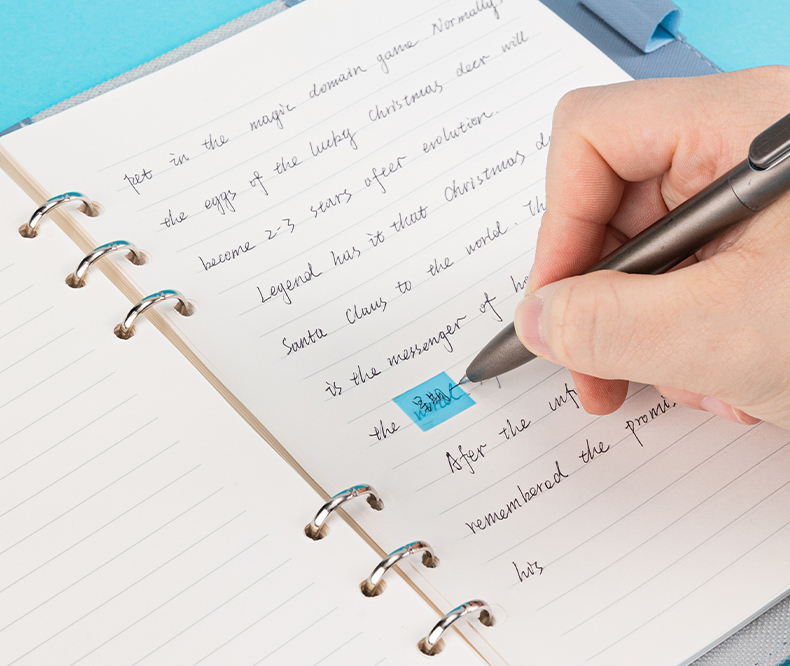 pet in the magic domain game. Normally,
the eggs of the lucky Christmas deer will
become 2-3 stars after evolution.
Legend has it that Christmas
Santa Claus to the world. Th
is the messenger of
the
Afer the
remembered the promis
his